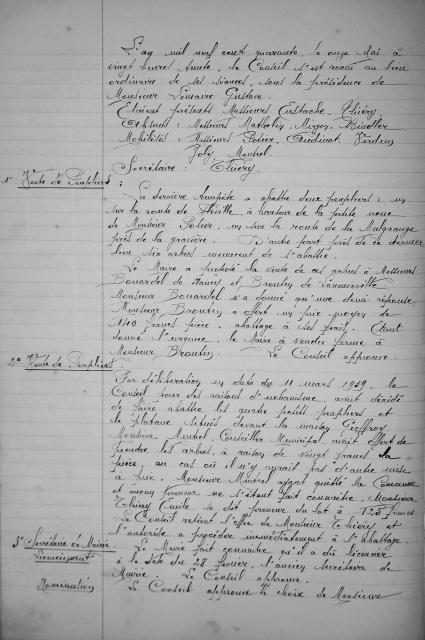 L'an mil neuf cent quarante, le onze Mai à
vingt heures trente, le Conseil s'est réuni au lieu
ordinaire de ses séances, sous la présidence de
Monsieur Lemaire Gustave.
Etaient présents Messieurs Eustache, Thiéry
Absents : Messieurs Mathelin, Bindler
Mobilisés : Messieurs Potier,
Joly,
Secrétaire : Thiéry
1° Vente de Peupliers :
La dernière tempête a abattu deux peupliers : un
sur la route de à hauteur de la petite
de Monsieur Potier, un sur la route de la Malgrange
près de la gravière. D'autre part près de ce dernier
lieu six arbres menacent de s'abattre.
Le Maire a proposé la vente de ces arbres à Messieurs
Bonardel de Nancy et Broutin de
Monsieur Bonardel n'a donné qu'une demi-réponse.
Monsieur Broutin a offert un prix moyen de
francs pièce, abattage à ses frais. Étant
donné l'urgence, le Maire a vendu ferme à
Monsieur Broutin. Le Conseil approuve.
2° Vente de Peupliers
Par délibération en date du 11 mars 1939, le
Conseil pour des raisons d'urbanisme, avait décidé
de faire abattre les quatre petits peupliers et
le platane situés devant la maison Geoffroy
Monsieur Conseiller Municipal, avait offert de
prendre les arbres, à raison de vingt francs la
pièce, au cas où il n'y aurait pas d'autre mise
à prix. Monsieur ayant quitté la Commune
et aucun preneur ne s'étant fait connaître, Monsieur
Thiéry Emile se dit preneur du lot à 125 francs
Le Conseil retient l'offre de Monsieur Thiéry et
l'autorise à procéder immédiatement à l'abattage.
3° Secrétaire de Mairie
Licenciement
Le Maire fait connaître qu'il a dû licencier
à la date du 28 février, l'ancien secrétaire de
Mairie. Le Conseil approuve.
Nomination
Le Conseil approuve le choix de Monsieur